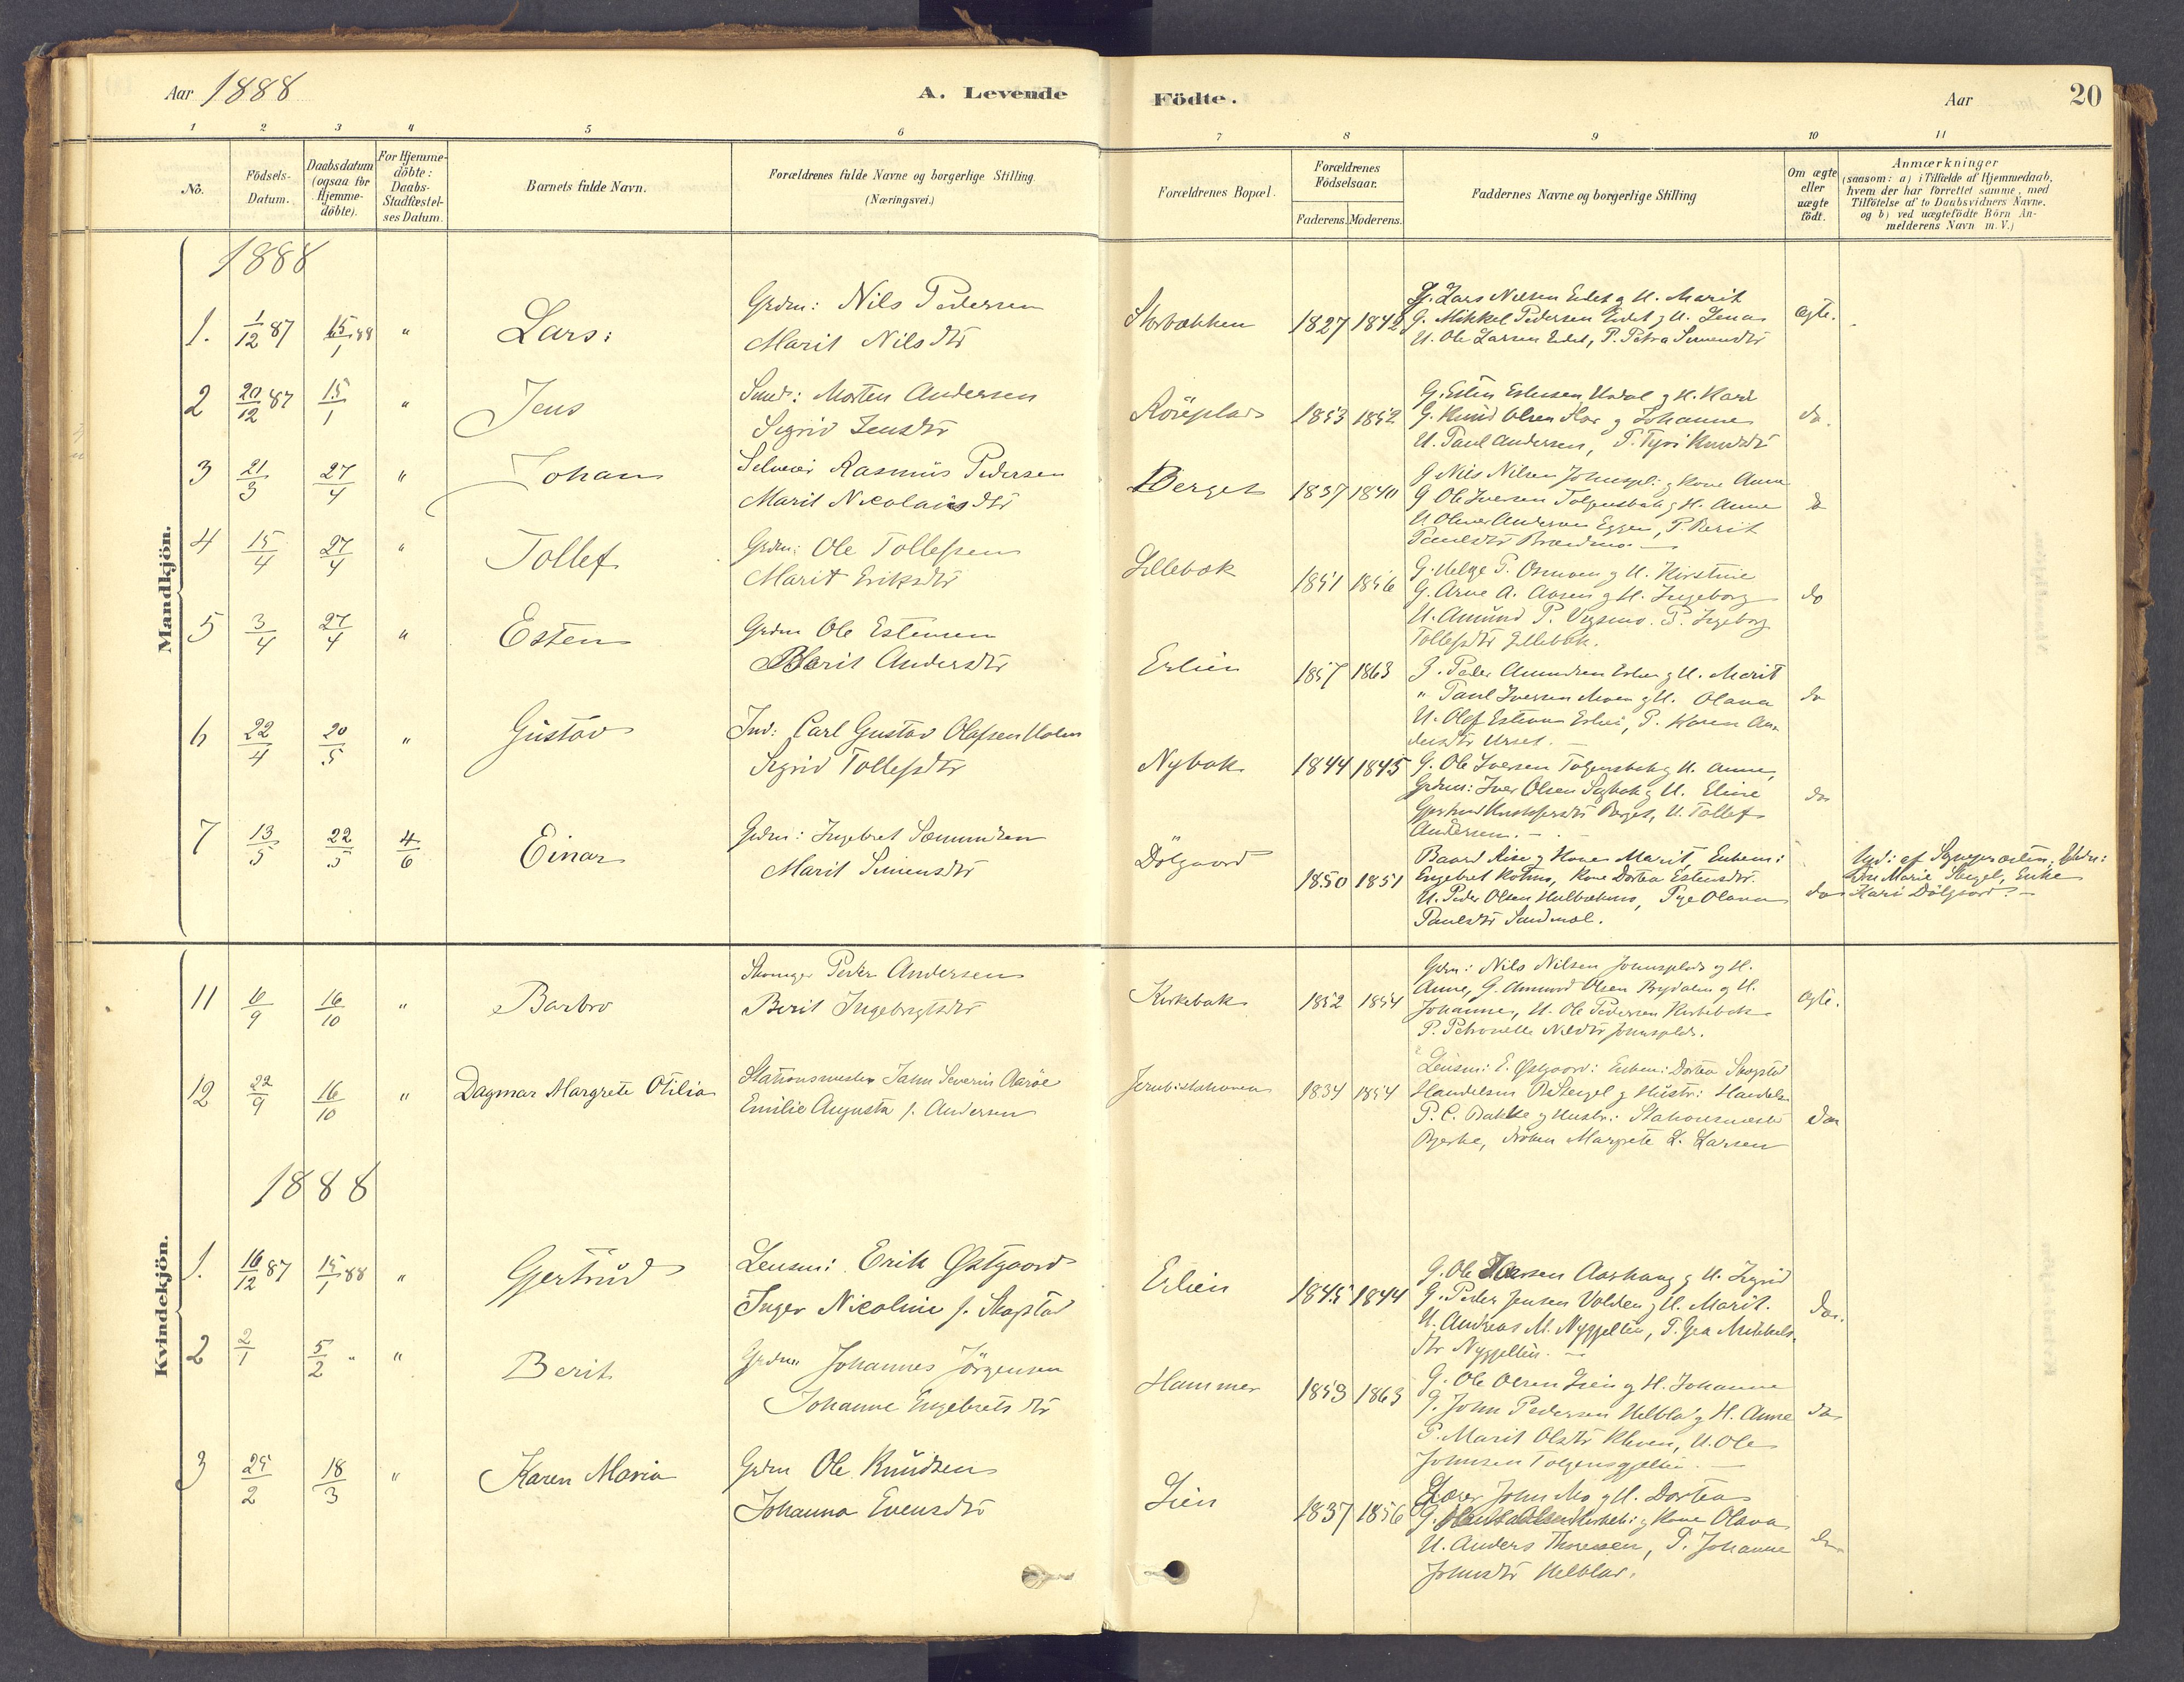 Aar 1888
A. Levende
Födte.
Aar
20
1 2 3 4 5 6 7 8 9 10 11
No.
Födsels-
Datum.
Daabsdatum
(ogsaa for
Hjemme-
döbte).
For Hjemme-
döbte:
Daabs-
Stadfæstel-
ses Datum.
Barnets fulde Navn.
Forældrenes fulde Navne og borgerlige Stilling
(Næringsvei.)
Forældrenes Bopæl.
Forældrenes
Födselsaar.
Faderens. Moderens.
Faddernes Navne og borgerlige Stilling
Om ægte
eller
uægte
födt.
Anmærkninger
(saasom: a) i Tilfælde af Hjemmedaab,
hvem der har forrettet samme, med
Tilföielse af to Daabsvidners Navne.
og b) ved uægtefödte Börn An-
melderens Navn m. V.)
Mandkjön.
1888
1. 1/12 87 15/1 88 " Lars:
Grdm: Nils Pedersen
Marit Nilsdtr
1827 1842
G. Lars Nilsen Eidet g H. Marit
G. Mikkel Pedersen Eidet g H. Lena
U. Ole Larsen Eidet, P. Petra Simensdtr
ægte.
2 20/12 87 15/1 " Jens
Smed: Morten Andersen
Sigrid Jensdtr
Röseplads 1853 1852
G. Knud Olsen g Johanne
U. Paul Andersen, P. Knudsdtr
do.
3 21/3 27/4 " Johan
Selveier Rasmus Pedersen
Marit Nicolaisdtr
Berget 1837 1840
G Nils Nilsen Johnspl: g Kone Anne
G Ole Iversen Tolgensbak g H. Anne
U Andersen Eggen, P. Berit
Paulsdtr
do
4 15/4 27/4 " Tollef
Grdm: Ole Tollefsen
Marit Eriksdtr
Lillebæk 1851 1856
G. Helge P. Osmoen g H. Kirstine
G. Arne A. Aasen g H. Ingeborg
U. Amund P. Vigsmo. P. Ingeborg
Tollefsdtr Lillebæk.
do
5 3/4 27/4 " Esten
Grdm Ole Estensen
Marit Andersdtr
Erlien 1857 1863
G. Peder Amundsen Erlien g H. Marit
" Paul Iversen Moen g H. Olava
U. Olof Estensen Erlien, P. Karen An-
dersdtr Urset.
do
6 22/4 20/5 " Gustav
Ind: Carl Gustav Olafsen Holm
Sigrid Tollefsdtr
Nybæk 1844 1845
G. Ole Iversen Tolgensbak g H. Anne,
Grdm: Iver Olsen g H. Eline
Berget, U. Tollef
Andersen.
do
7 13/5 22/5 4/6 Einar
Grdm: Ingebret Sæmundsen
Marit Simensdtr
Dölgaard 1850 1851
Baard Rise g Kone Marit, Enkem:
Engebret Kotmo, Kone Dortea Estensdtr.
U. Peder Olsen Hulbækmo, Pige Olava
Paulsdtr Sandmæl.
do
Marie Stengel, Enke
Kari Dölgaard.
Kvindekjön.
11 6/9 16/10 " Barbro
Peder Andersen
Berit Ingebrigtsdtr
Kirkebæk 1852 1854
Grdm: Nils Nilsen Johnsplads og H.
Anne, G. Amund Olsen Brydalen og H.
Johanne, U. Ole Pedersen Kirkebæk
P. Petronelle Nilsdtr Johnsplds.
ægte.
12 22/9 16/10 " Dagmar Margrete Otilia
Stationsmester Jahn Severin Aaröe
Emilie Augusta f. Andersen
Jernbstationen 1834 1854
Lensm: E. Østgaard: Enkem: Dortea Skogstad
Handelsm O. Stengel g Hustr: Handels.
P. C. Bakke g Hustr: Stationsmester
Bjerke, Fröken Margrete L. Larsen
do
1888
1. 16/12 87 15/1 88 " Gjertrud
Lensm: Erik Østgaard
Inger Nicoline f. Skogstad
Erlien 1845 1844
G. Ole Iversen Aashaug g H. Sigrid
G. Peder Jensen Volden g H. Marit.
U. Andreas M. Nygjelten, P. Gea Mikkels-
dtr Nygjelten.
do.
2 2/1 5/2 " " Berit
Grdm Johannes Jörgensen
Johanne Engebretsdtr
Hammer 1859 1863
G. Ole Olsen Lien g H. Johanne
G. John Pedersen Helblad g H. Anne
P. Marit Olsdtr Kleven, U. Ole
Johnsen Tolgensgjelten.
do
3 25/2 18/3 " Karen Maria
Grdm Ole Knudsen
Johanna Evensdtr
Lien 1837 1856
Lærer John Mo g H. Dortea
G. Kirkeb: g Kone Olava
U. Anders Thoresen, P. Johanne
Johnsdtr Helblad.
do